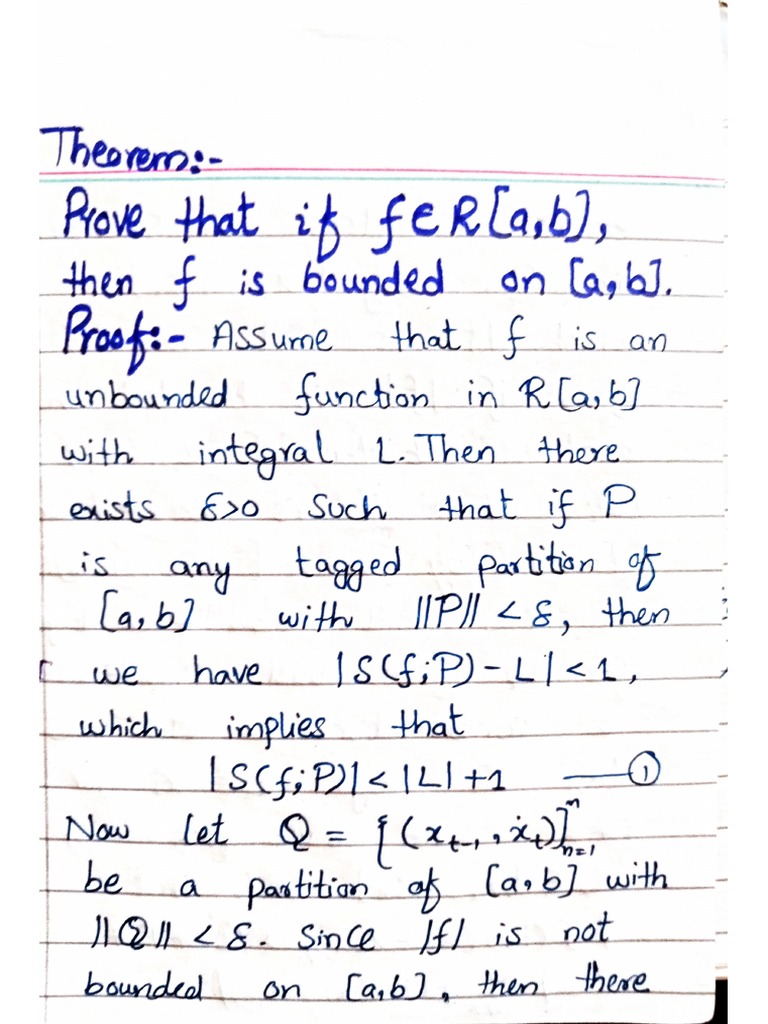 Theorem:-
Prove that if f∈R[a,b],
then f is bounded on [a,b].
Proof:- Assume that f is an
unbounded function in R[a,b]
with integral L. Then there
exists δ>0 Such that if P
is any tagged partition of
[a,b] with ||P|| < δ, then
we have |S(f;P) - L| < 1,
which implies that
|S(f;P)| < |L| + 1 —①
Now let Q = {(x_{t-1}, x_t)]_{n=1}^n
be a partition of [a,b] with
||Q|| < δ. Since |f| is not
bounded on [a,b], then there